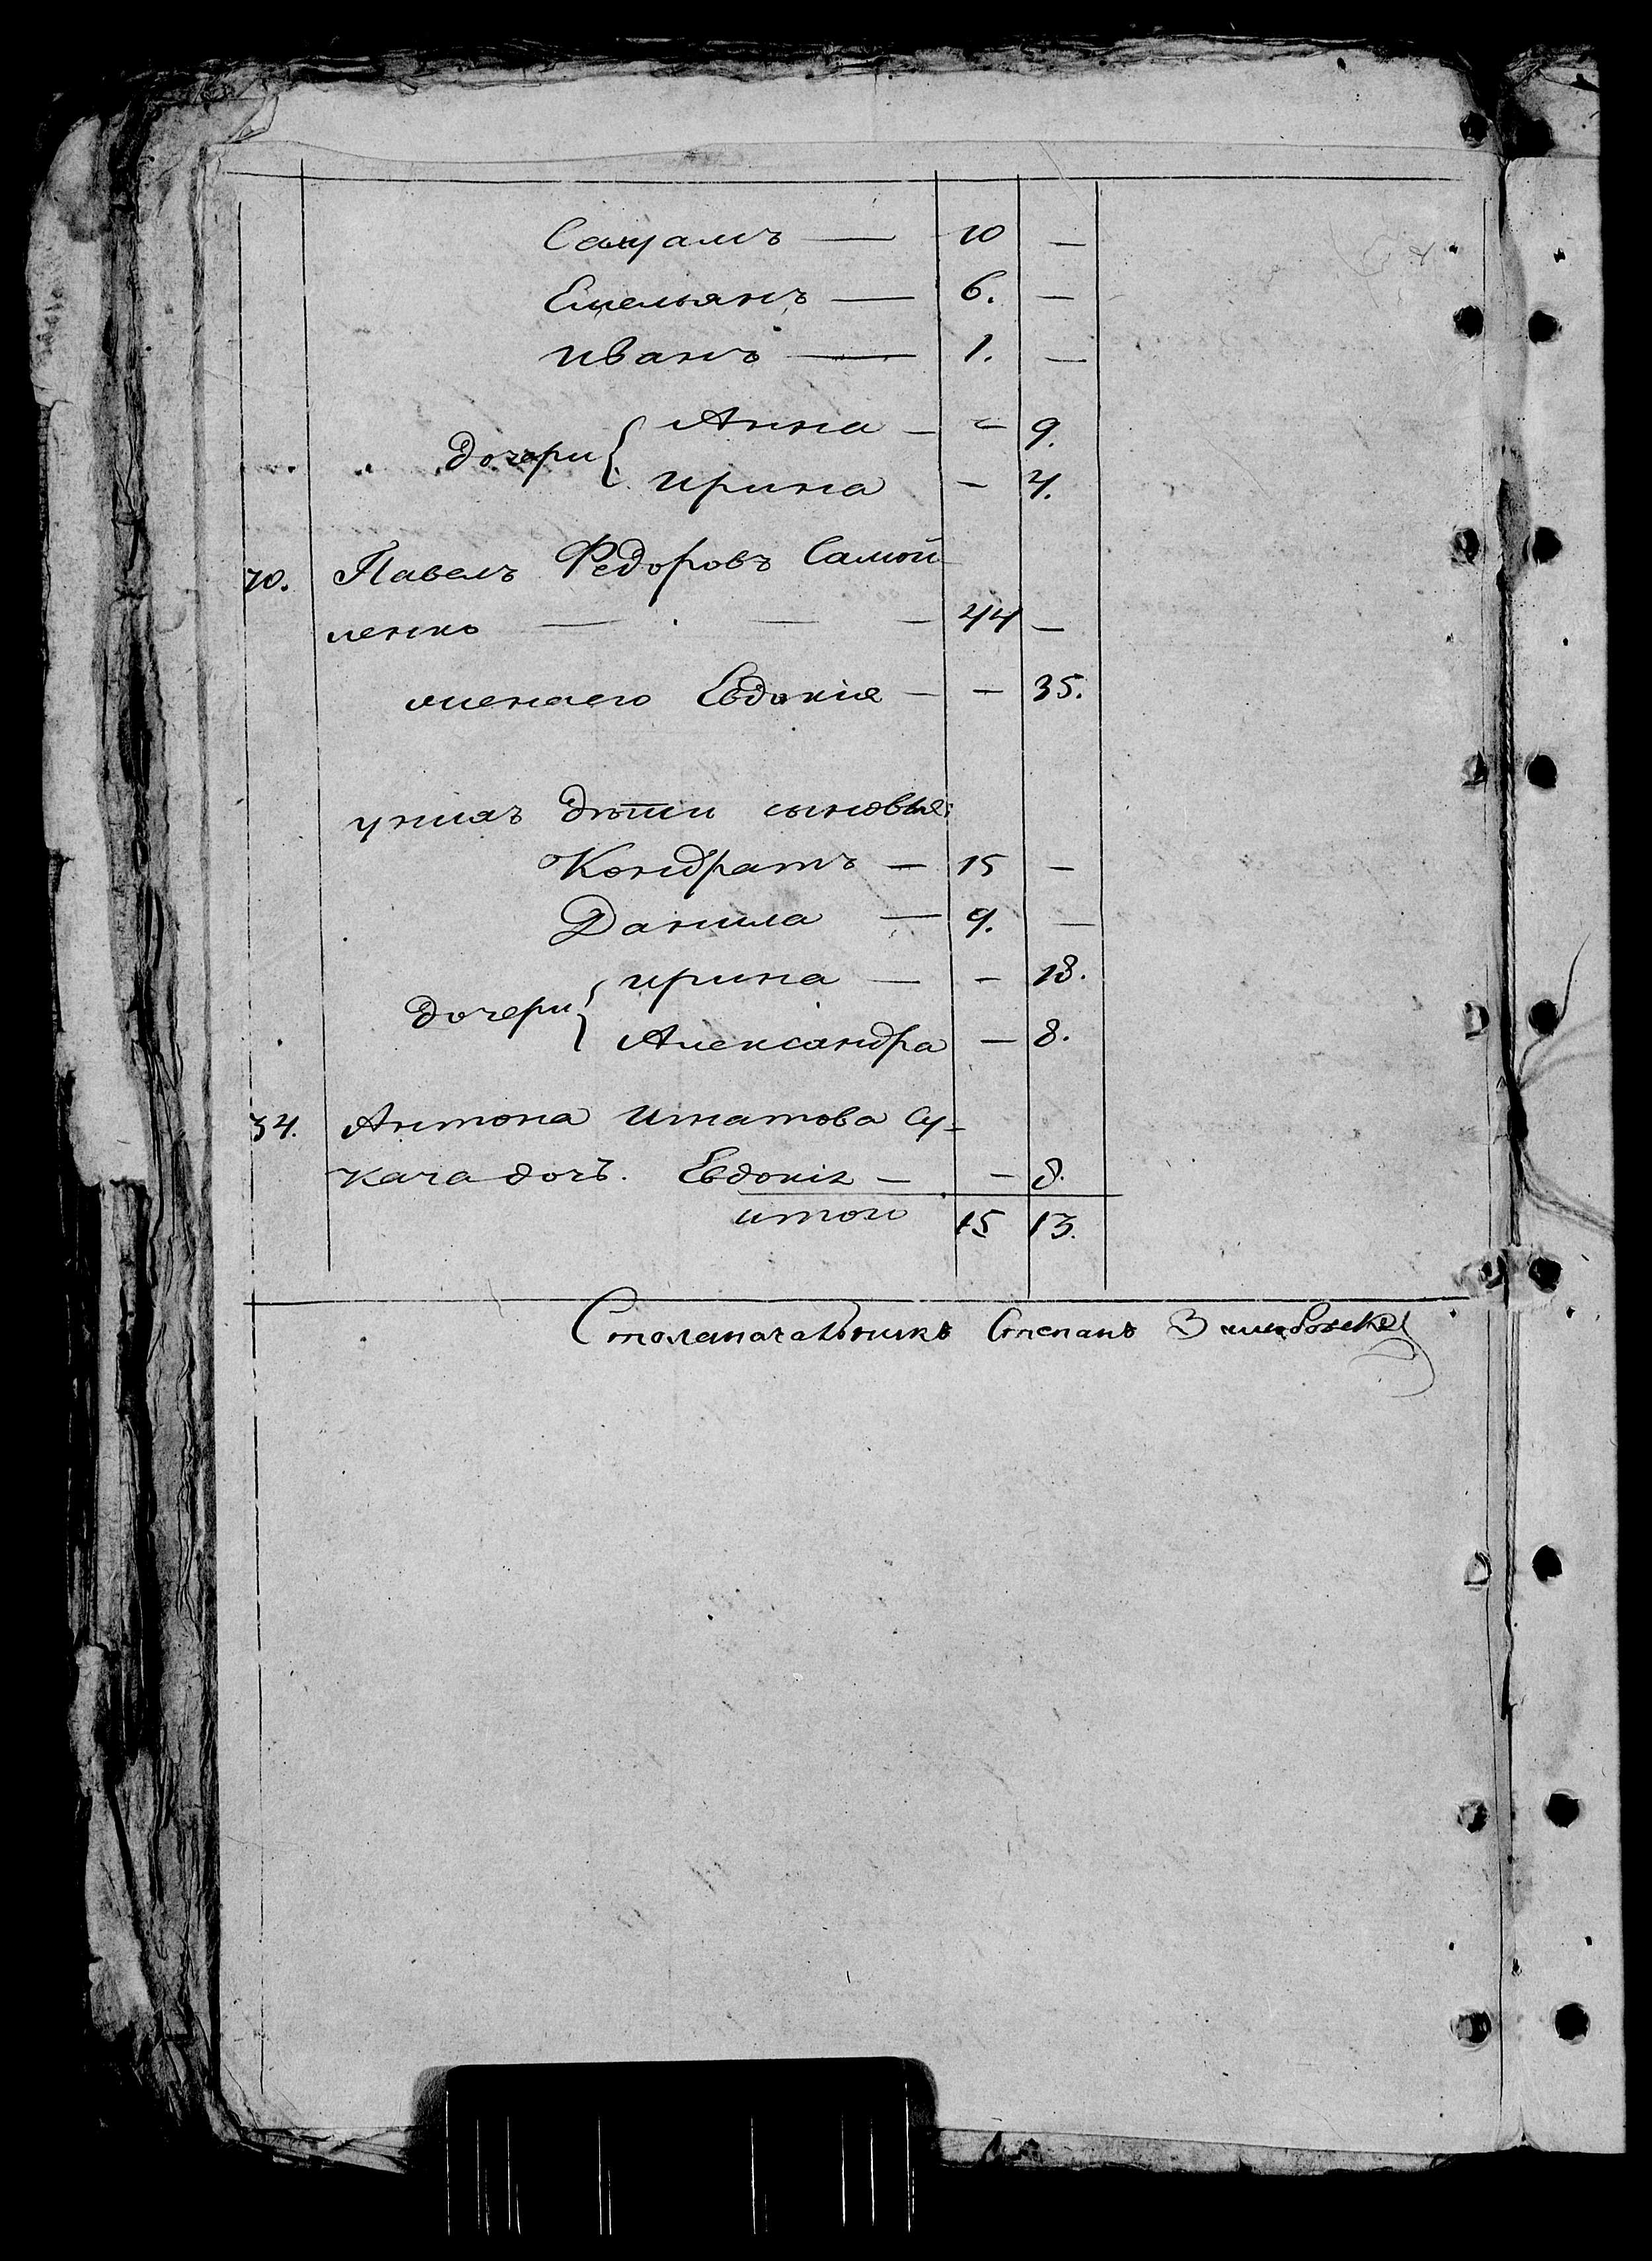 — 10 —
Емельянъ — 6. —
Иванъ — 1. —
Анна — - 9.
дочери {
Ирина - 4.
70. Павелъ Федоровъ Самой
ленко — — — 44 —
жена его Евдокія — - 35.
у нихъ дѣти сыновья:
Кондратъ — 15 —
Данила — 9. —
Ирина — - 18.
дочери {
Александра — 8.
34. Антона Игнатова Су-
кача дочь. Евдокія — - 8.
итого 15 13.
Столоначальникъ Степанъ